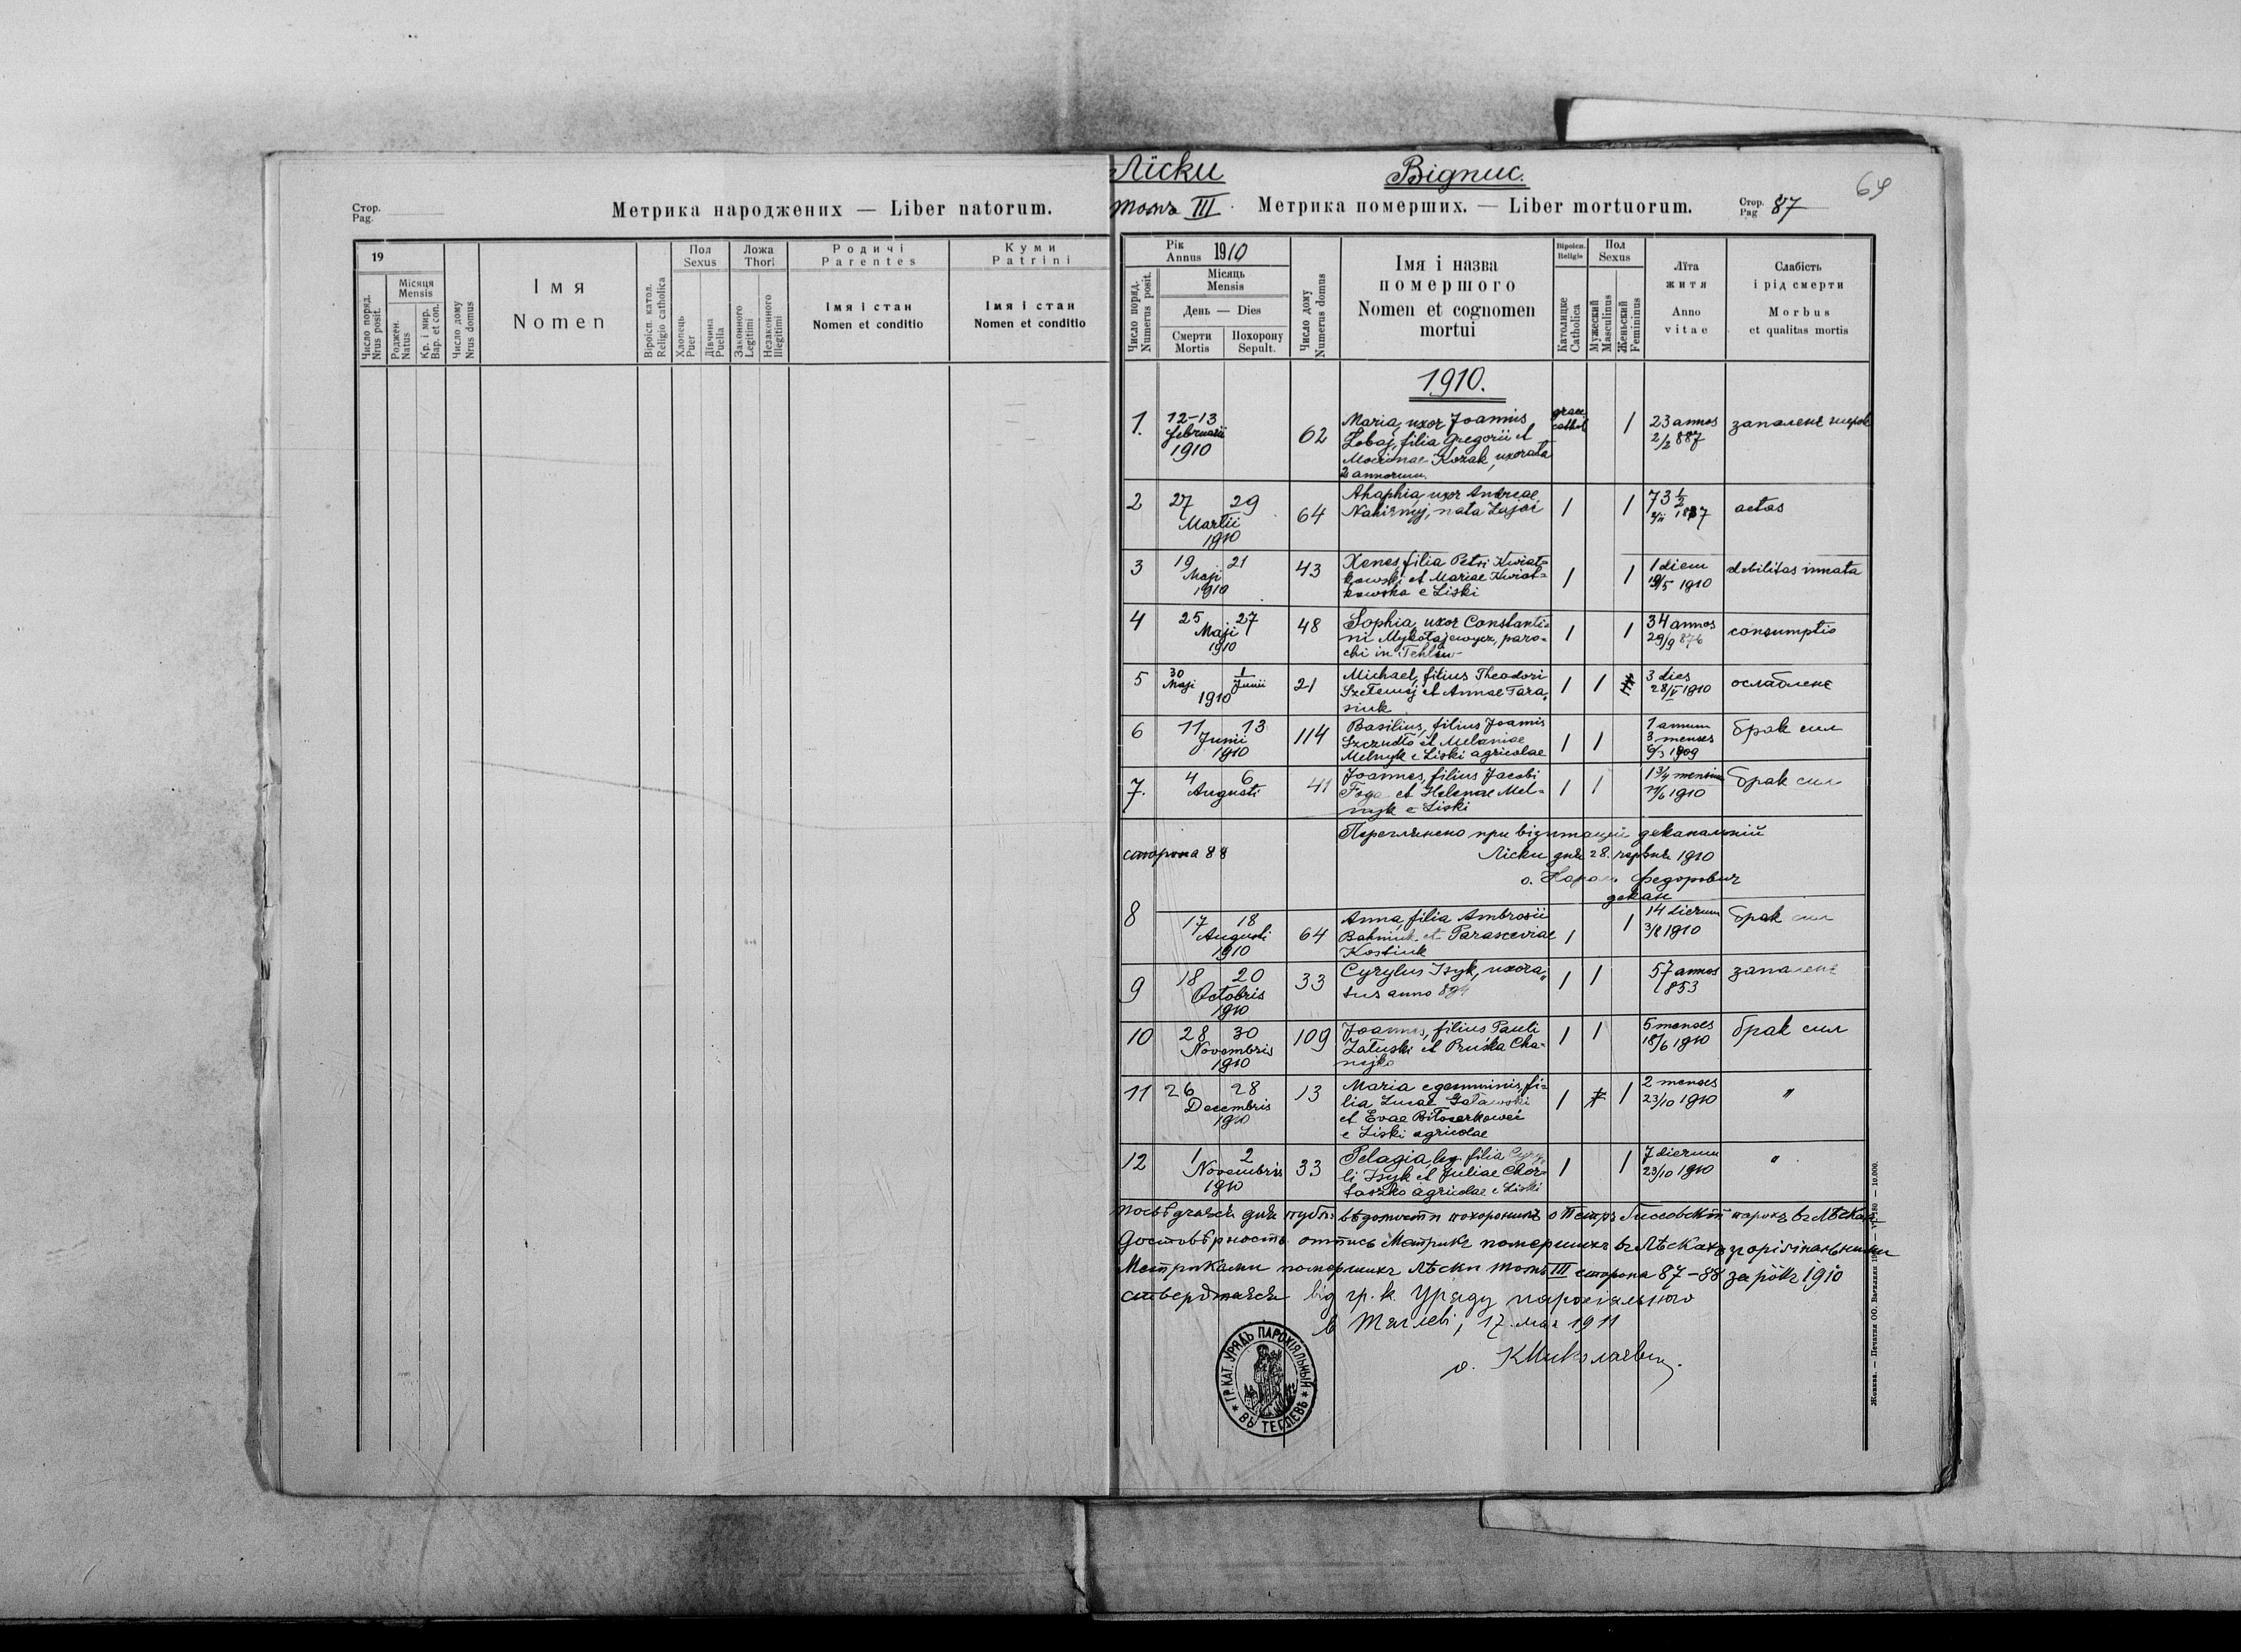 Стор.
Pag.
Метрика народжених — Liber natorum.
19
Число поряд.
Nrus posit.
Місяця
Mensis
Роджен.
Natus
Кр. і мир.
Bap. et con.
Число дому
Nrus domus
Імя
Nomen
Віроісп. катол.
Religio catholica
Пол
Sexus
Хлопець
Puer
Дівчина
Puella
Ложа
Thori
Законного
Legitimi
Незаконного
Illegitimi
Родичі
Parentes
Імя і стан
Nomen et conditio
Куми
Patrini
Імя і стан
Nomen et conditio
Ліски
Відпис.
69
томъ III.
Метрика померших. — Liber mortuorum.
Стор.
Pag 87
Число поряд.
Numerus posit.
Рік
Annus 1910
Місяць
Mensis
День — Dies
Смерти
Mortis
Похорону
Sepult.
Число дому
Numerus domus
Імя і назва
померш­ого
Nomen et cognomen
mortui
Віроісп.
Religio
Католицке
Catholica
Пол
Sexus
Мужеский
Masculinus
Женьский
Femininus
Лїта
житя
Anno
vitae
Слабість
і рід смерти
Morbus
et qualitas mortis
1910.
1. 12-13 Februarii 1910 62
Maria, uxor Joannis
Łobaj, filia Gregorii et
Kozak, uxorata
2 annorum.
graec. cathol. 1
23 annos
2/2 887
запаленє
2 27 29 Martii 1910 64
Ahaphia uxor Andreae
Nahirnyj, nata Zając
1 1
73 1/2
aetas
3 19 21 Maji 1910 43
Xenes, filia Petri Kwiat=
kowski et Mariae Kwiat=
kowska e Liski
1 1
1 diem
19/5 1910
debilitas innata
4 25 27 Maji 1910 48
Sophia, uxor Constanti=
ni Mykołajewycz, paro=
chi in Tehlow
1 1
34 annos
29/9 876
consumptio
5 30 Maji 1 Junii 1910 21
Michael, filius Theodori
et Annae Tara=
siuk
1 1
3 dies
28/V 1910
ослабленє
6 11 13 Junii 1910 114
Basilius, filius Joannis
Szczudło et Melaniae
Melnyk e Liski agricolae
1 1
1 annum
3 menses
1909
брак сил
7. 4 6 Augusti 41
Joannes, filius Jacobi
Foga et Helenae Mel=
nyk e Liski
1 1
1 3/4 mensium
1910
брак сил
Переглянено при візитациї деканальній
сторона 88
Ліски дня 28. червня 1910
о. Федорович
декан
8 17 18 Augusti 1910 64
Anna, filia Ambrosii
Bahniuk et Parasceviae
Kostiuk
1 1
14 dierum
3/8 1910
брак сил
9 18 20 Octobris 1910 33
Cyrylus Isyk, uxora=
tus anno 894
1 1
57 annos
1853
запаленє
10 28 30 Novembris 1910 109
Joannes, filius Pauli
Załuski et Pruśka Cha=
nijko
1 1
5 menses
18/6 1910
брак сил
11 26 28 Decembris 1910 13
Maria e geminis, fi=
lia Lucae
et Evae
e Liski agricolae
1 1
2 menses
23/10 1910
"
12 1 2 Novembris 1910 33
Pelagia, filia Cyry=
li Isyk et Juliae Chor=
taszko agricolae e Liski
1 1
7 dierum
23/10 1910
"
похоронивъ о Петръ парохъ
Достовѣрность отпись Метрикъ померших въ Лѣскахъ з оріґінальними
Метриками померших Лѣски томъ III сторона 87-88 за рôкъ 1910
стверджаєся від гр. к. Уряду парохіяльного
в Теглеві, 17. мая 1911
о. КМиколаєвич.
ГР. КАТ. УРЯДЪ ПАРОХІЯЛЬНЫЙ ВЪ ТЕГЛЕВѢ
Жовква. — Печатня ОО. Василиян — 10.000.